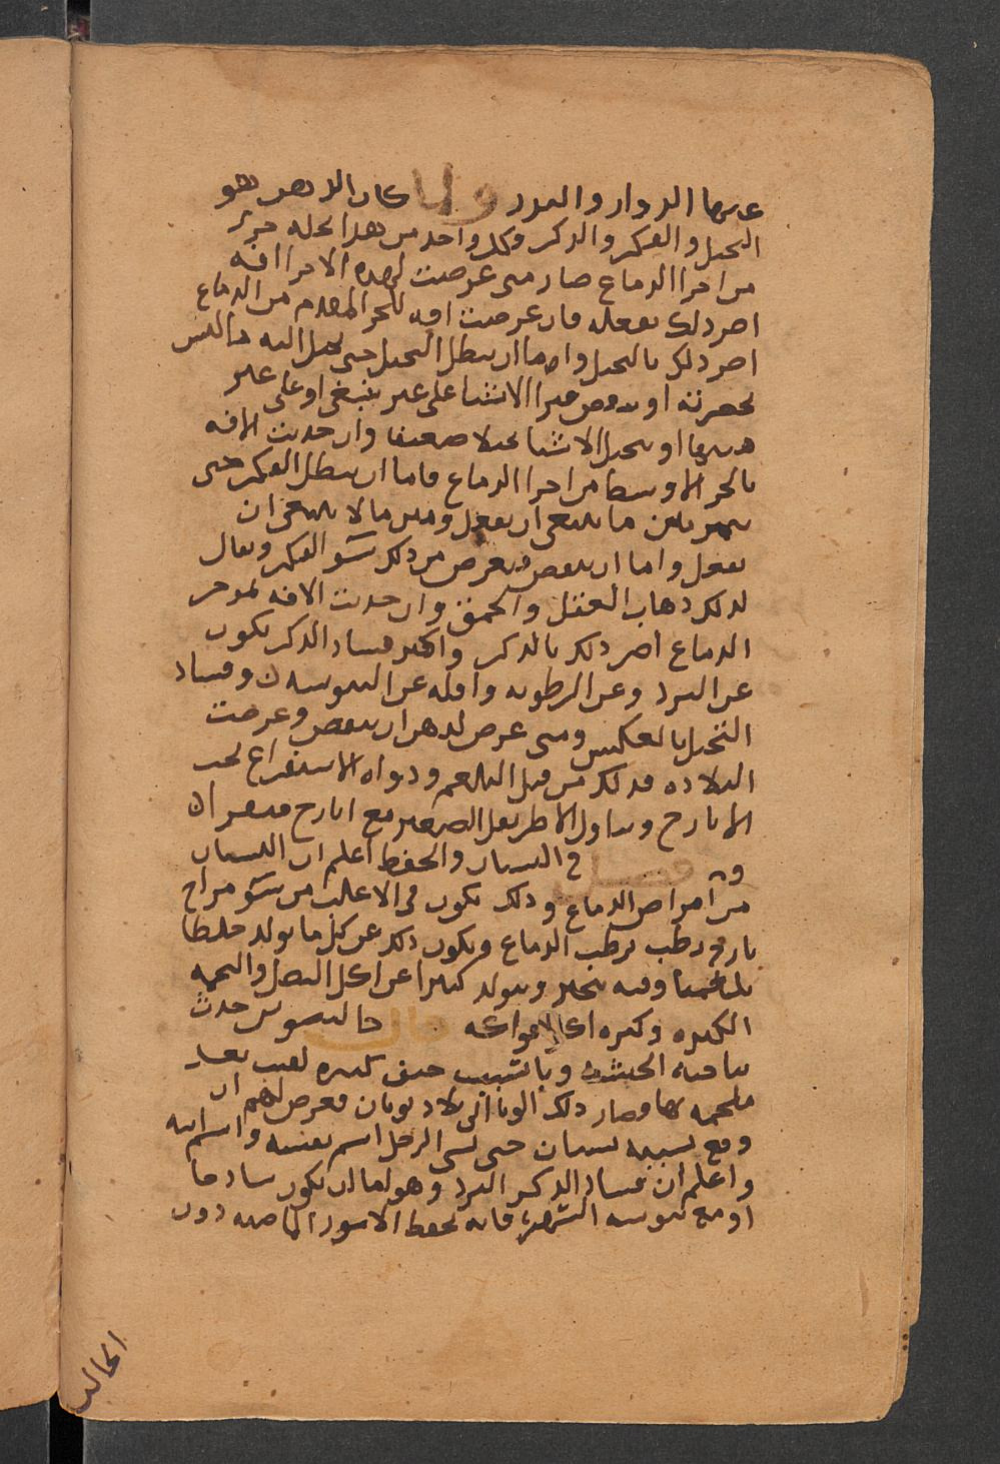 عنها الدوار والسدر ولما كان الذهن هو
التخيل والفكر والذكر وكل واحد من هذا محله جزء
من اجزا الدماغ صار متى عرضت لهذه الاجزا افة
اضر ذلك بفعله فان عرضت افة للجز المقدم من الدماغ
اضر ذلك بالتخيل واما ان يبطل التخيل حتى يخيل اليه ما ليس
بحضرته او ينقص فيرا الاشيا على غير ينبغي او على غير
هيتها او يتخيل الاشيا تخيلا ضعيفا وان حدثت الافه
بالجز الاوسط من اجزا الدماغ فاما ان يبطل الفكر حتى
بين ما ينبغي ان يفعل وبين ما لا ينبغي ان
يفعل واما ان ينقص فيعرض من ذلك سو الفكر ويقال
لذلك ذهاب العقل والحمق وان حدثت الافه بموخر
الدماغ اضر ذلك بالذكر واكثر فساد الذكر يكون
عن البرد وعن الرطوبه واقله عن اليبوسه وفساد
التخيل بالعكس ومتى عرض للذهن ان ينقص وعرضت
البلاده فذلك من قبل البلغم ودواه الاستفراغ بحب
الايارج وتناول الاطريفل الصغير مع ايارج فيقرا
فصل في النسيان والحفظ اعلم ان النسيان
من امراض الدماغ وذلك يكون في الاغلب من سو مزاج
بارد رطب يرطب الدماغ ويكون ذلك عن كل ما يولد خلطا
بلغميا وفيه تبخير ويتولد كثيرا عن اكل البصل والتخمه
الكثيره وكثره اكل الفواكه قال جالينوس حدث
بناحية الحبشه وبا بسبب جيف كثيره بقيت بعد
ملحمه بها وصار ذلك الوبا الى بلاد يونان فعرض لهم ان
وقع بسببه نسيان حتى نسي الرجل اسم نفسه واسم ابيه
واعلم ان فساد الذكر البرد وهو اما ان يكون ساذجا
او مع يبوسه فانه يحفظ الامور الماضيه دون
الحاليه